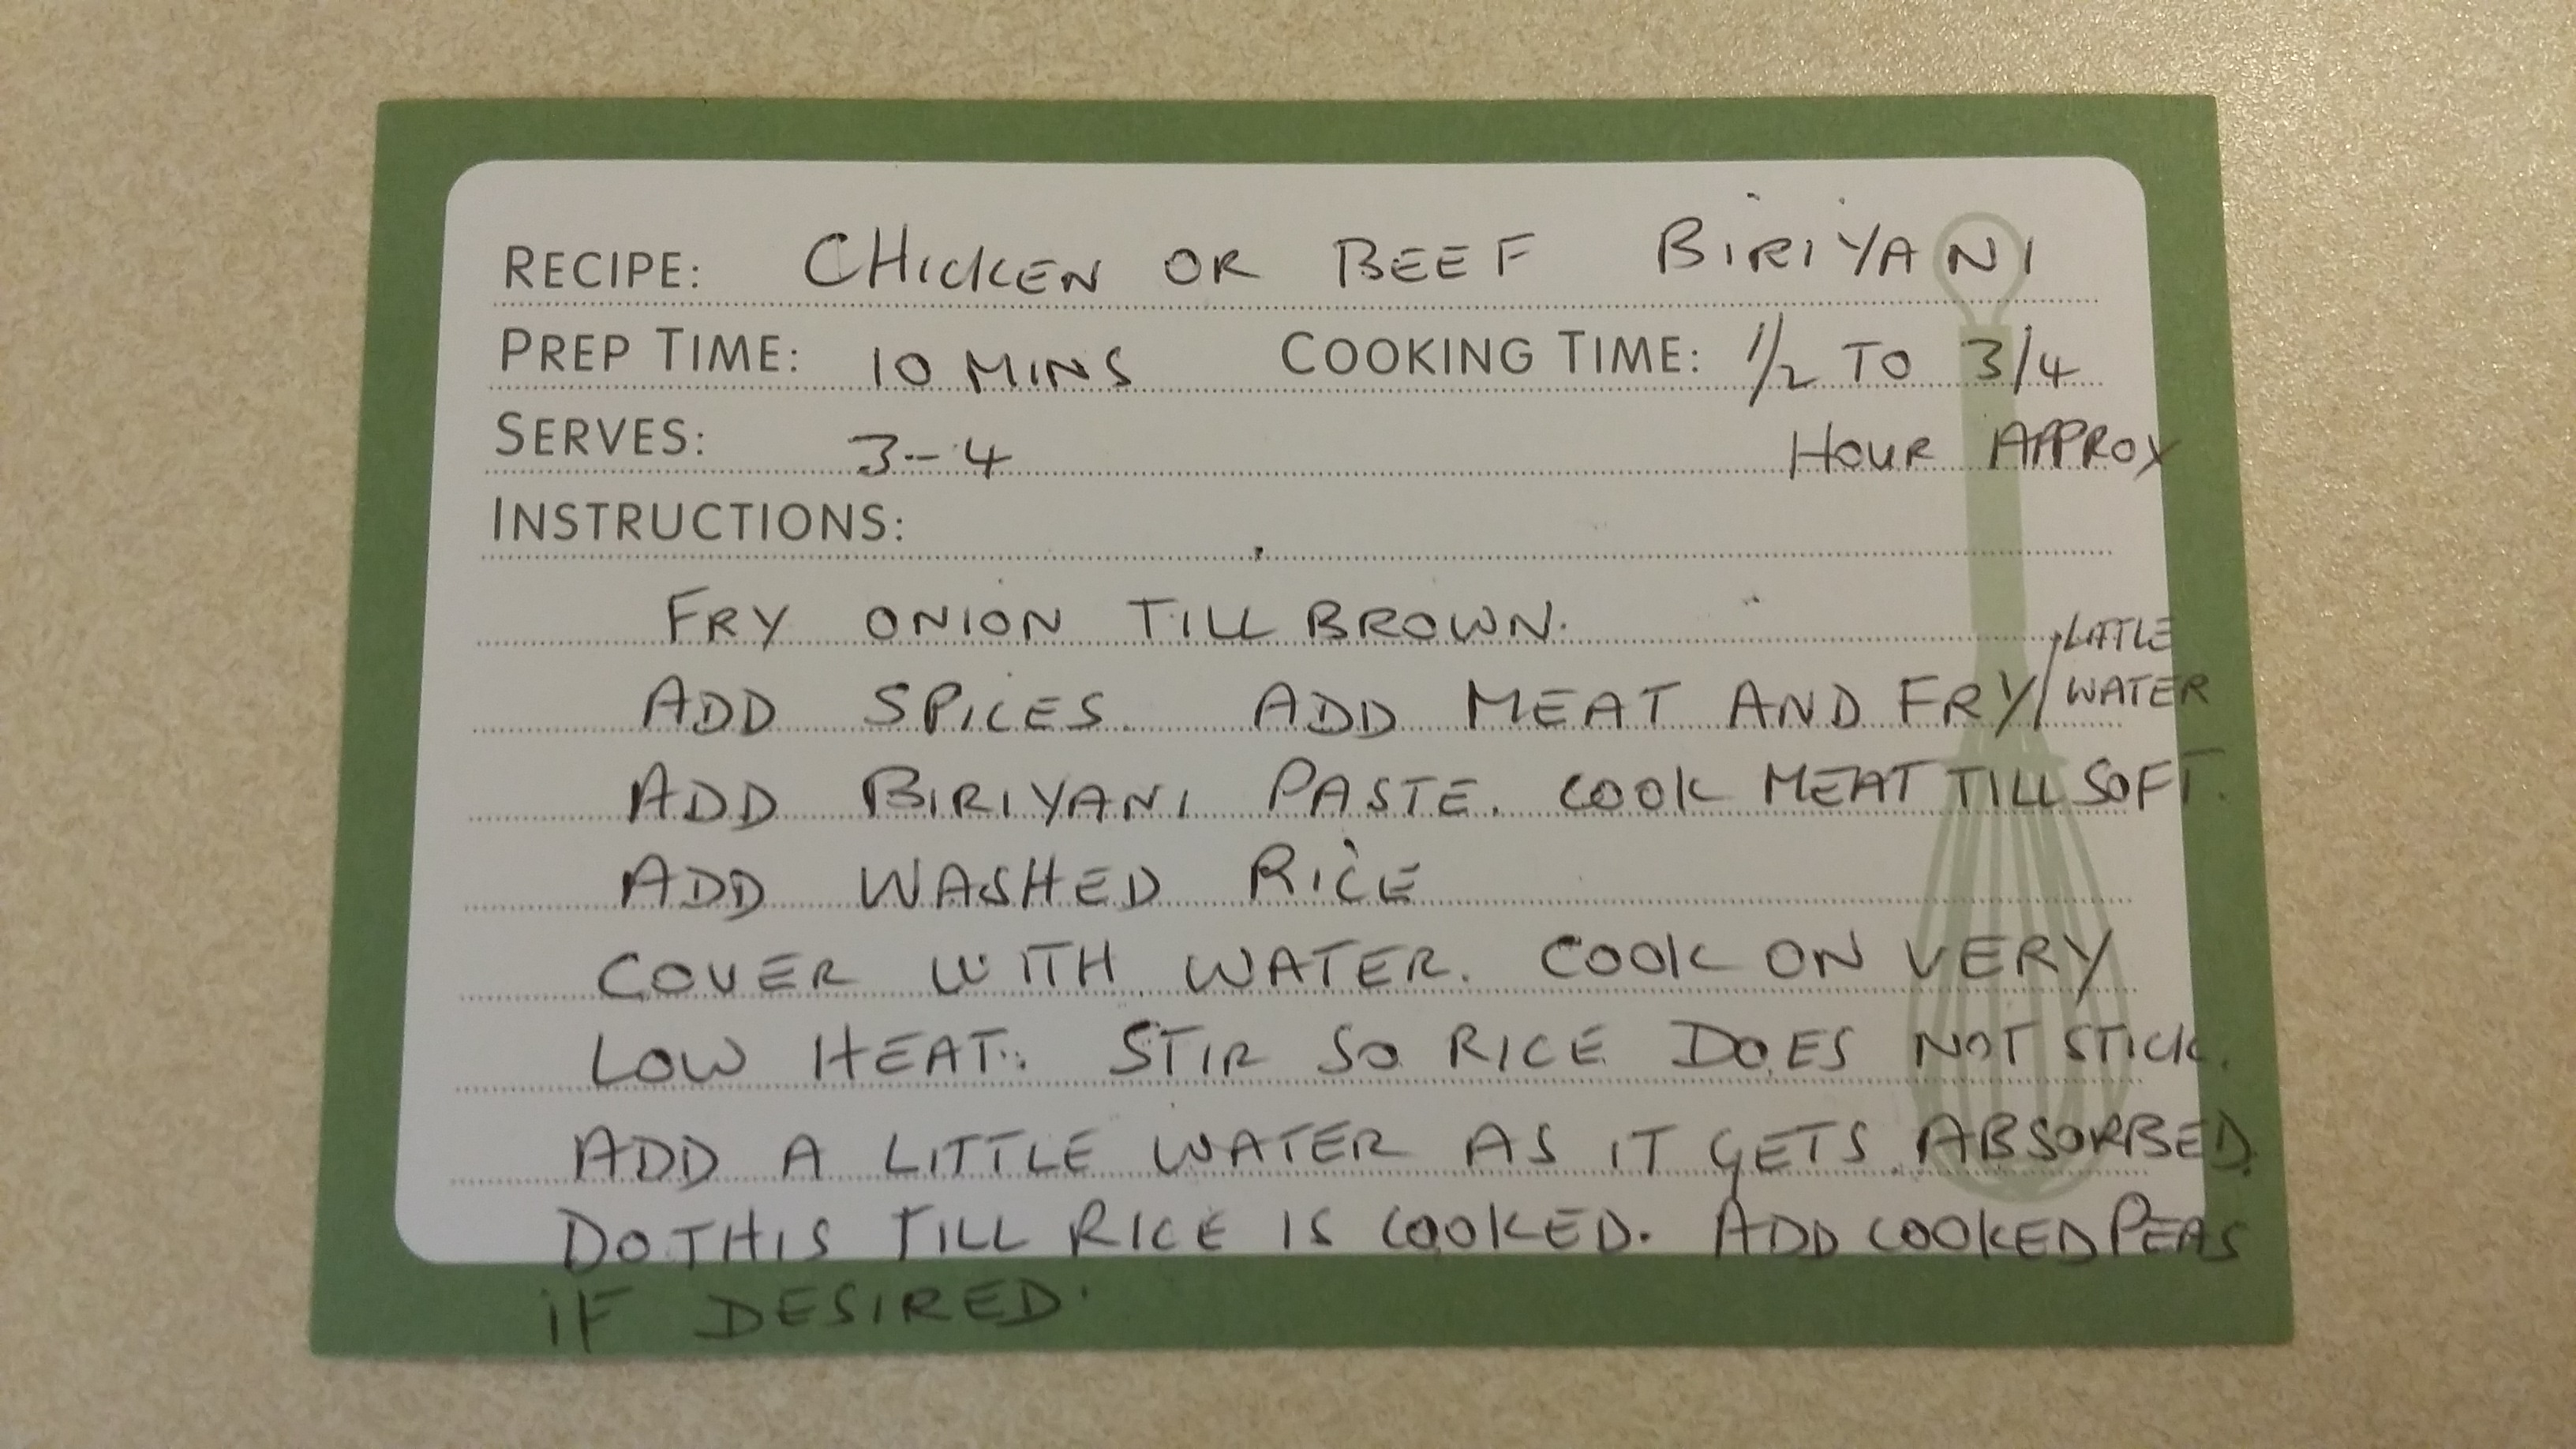 RECIPE: CHICKEN OR BEEF BIRIYANI
PREP TIME: 10 MINS COOKING TIME: 1/2 TO 3/4
SERVES: 3-4 HOUR APPROX
INSTRUCTIONS:
FRY ONION TILL BROWN.
ADD SPICES. ADD MEAT AND FRY/ LITTLE WATER
ADD BIRIYANI PASTE. COOK MEAT TILL SOFT.
ADD WASHED RICE
COVER WITH WATER. COOK ON VERY
LOW HEAT. STIR SO RICE DOES NOT STICK.
ADD A LITTLE WATER AS IT GETS ABSORBED.
DO THIS TILL RICE IS COOKED. ADD COOKED PEAS
IF DESIRED.